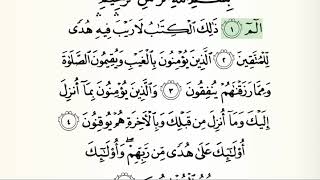 الٓمٓ ﴿١﴾ ذَٰلِكَ ٱلْكِتَٰبُ لَا رَيْبَ فِيهِ هُدًى
لِّلْمُتَّقِينَ ﴿٢﴾ ٱلَّذِينَ يُؤْمِنُونَ بِٱلْغَيْبِ وَيُقِيمُونَ ٱلصَّلَوٰةَ
وَمِمَّا رَزَقْنَٰهُمْ يُنفِقُونَ ﴿٣﴾ وَٱلَّذِينَ يُؤْمِنُونَ بِمَآ أُنزِلَ
إِلَيْكَ وَمَآ أُنزِلَ مِن قَبْلِكَ وَبِٱلْءَاخِرَةِ هُمْ يُوقِنُونَ ﴿٤﴾
أُو۟لَٰٓئِكَ عَلَىٰ هُدًى مِّن رَّبِّهِمْ ۖ وَأُو۟لَٰٓئِكَ